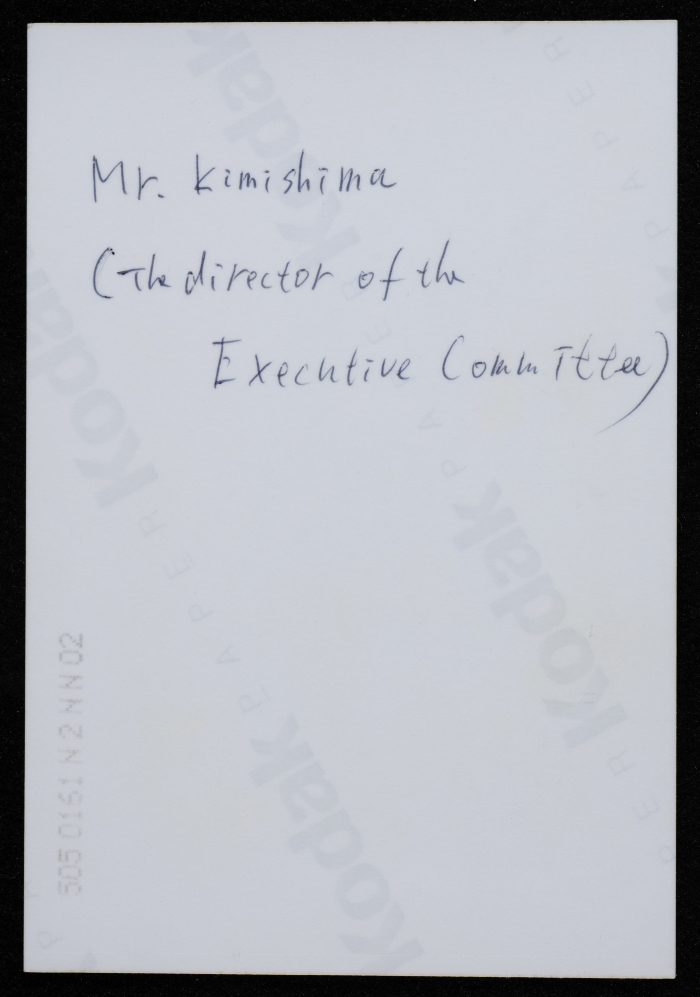 Mr. Kimishima
(The director of the
Executive Committee)
Kodak
PAPER
Kodak
PAPER
Kodak
PAPER
Kodak
505 0161 N 2 N N 02